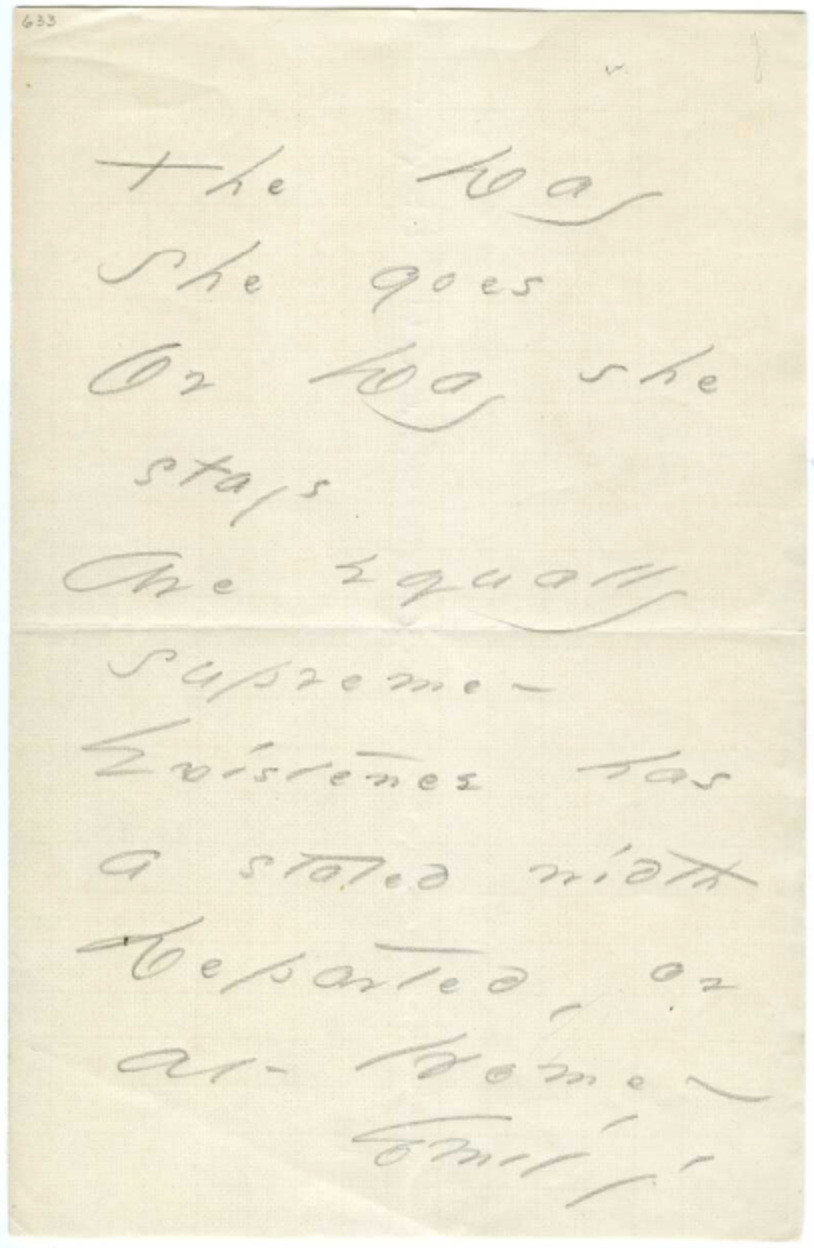 633
The Day
She goes
Or Day she
stays
Are Equally
supreme -
Existence has
a stated width
Departed, or
at Home -
Emily -